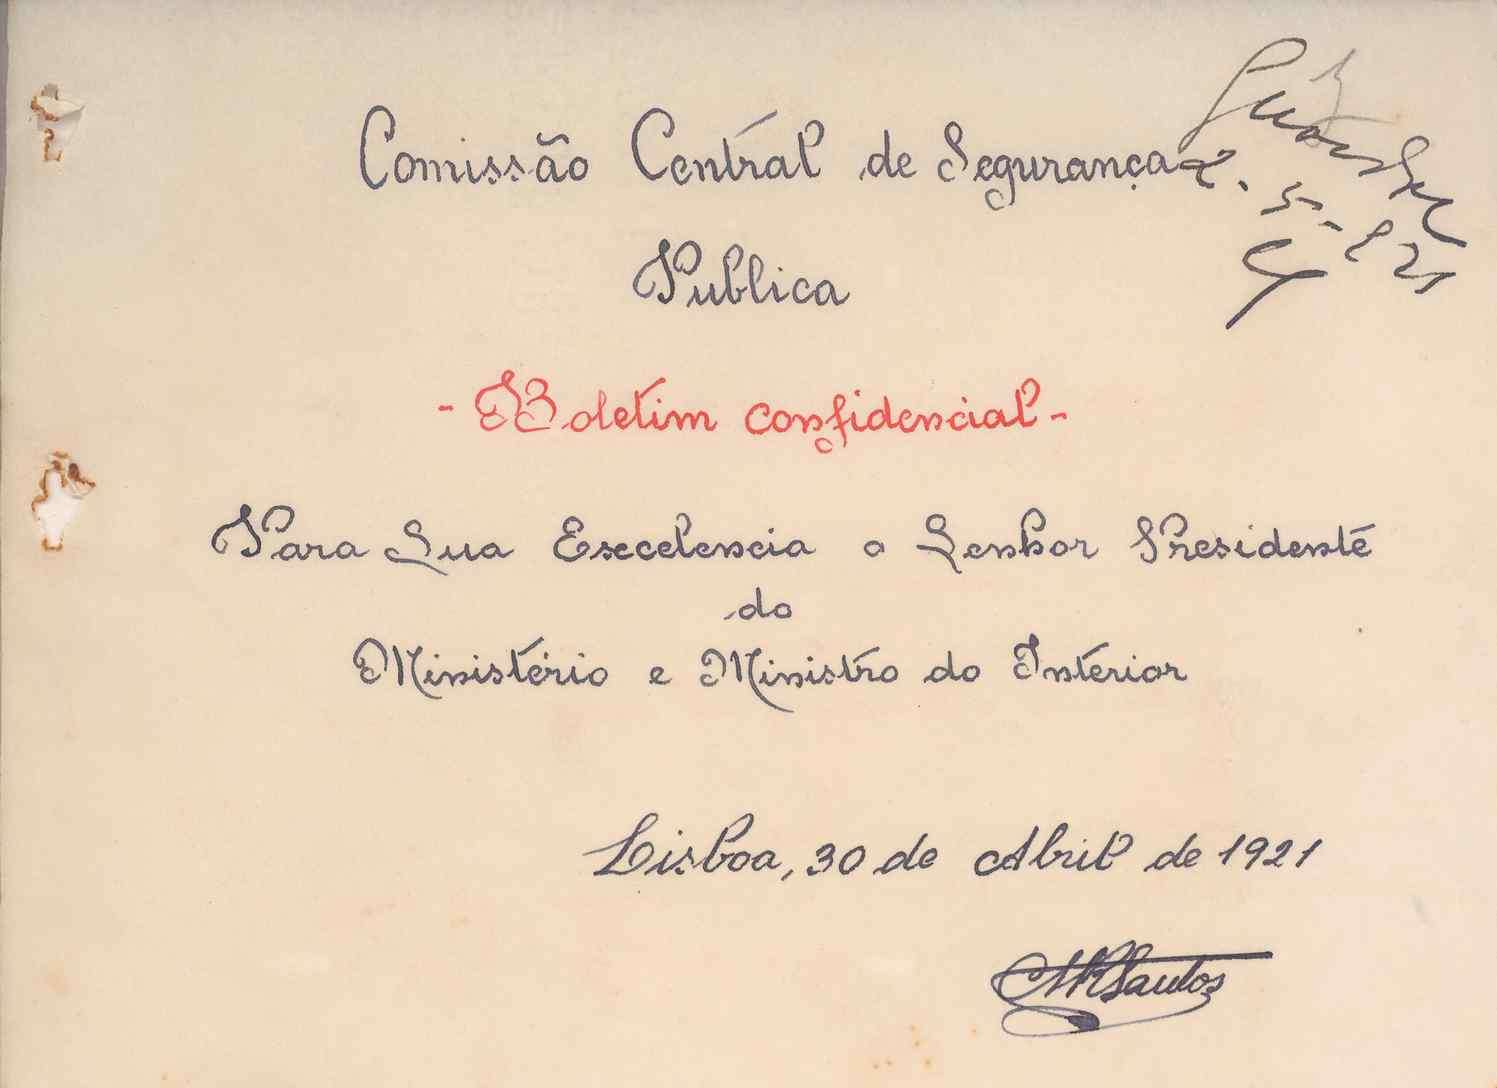 Comissão Central de Segurança
Publica
- Boletim confidencial -
Para Sua Excelencia o Senhor Presidente
do
Ministério e Ministro do Interior
Lisboa, 30 de Abril de 1921
Guarde-se
2-5-921